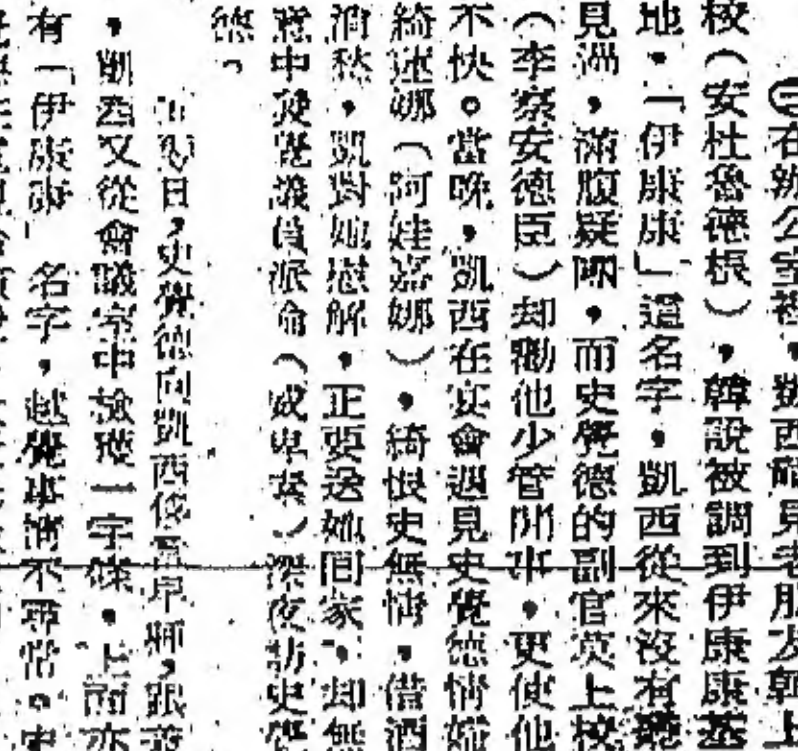 ㊁在辦公室裡，凱西竟見老朋友韓上
校（安杜魯德根），韓說被調到伊康康基
地。「伊康康」這名字，凱西從來沒有聽
見過，滿腹疑團，而史覺德的副官英上校
（李察安德臣）却勸他少管閒事，更使他
不快。當晚，凱西在宴會遇見史覺德情婦
綺達娜（阿娃嘉娜），綺恨史無情，借酒
消愁，凱對她慰解，正要送她回家，却無
意中發覺議員派倫（威卑素）深夜訪史覺
德。
日，史覺德向凱西
，凱西又從會議室中檢獲一字條，上面亦
有「伊康康」名字，越覺事情不尋常。史